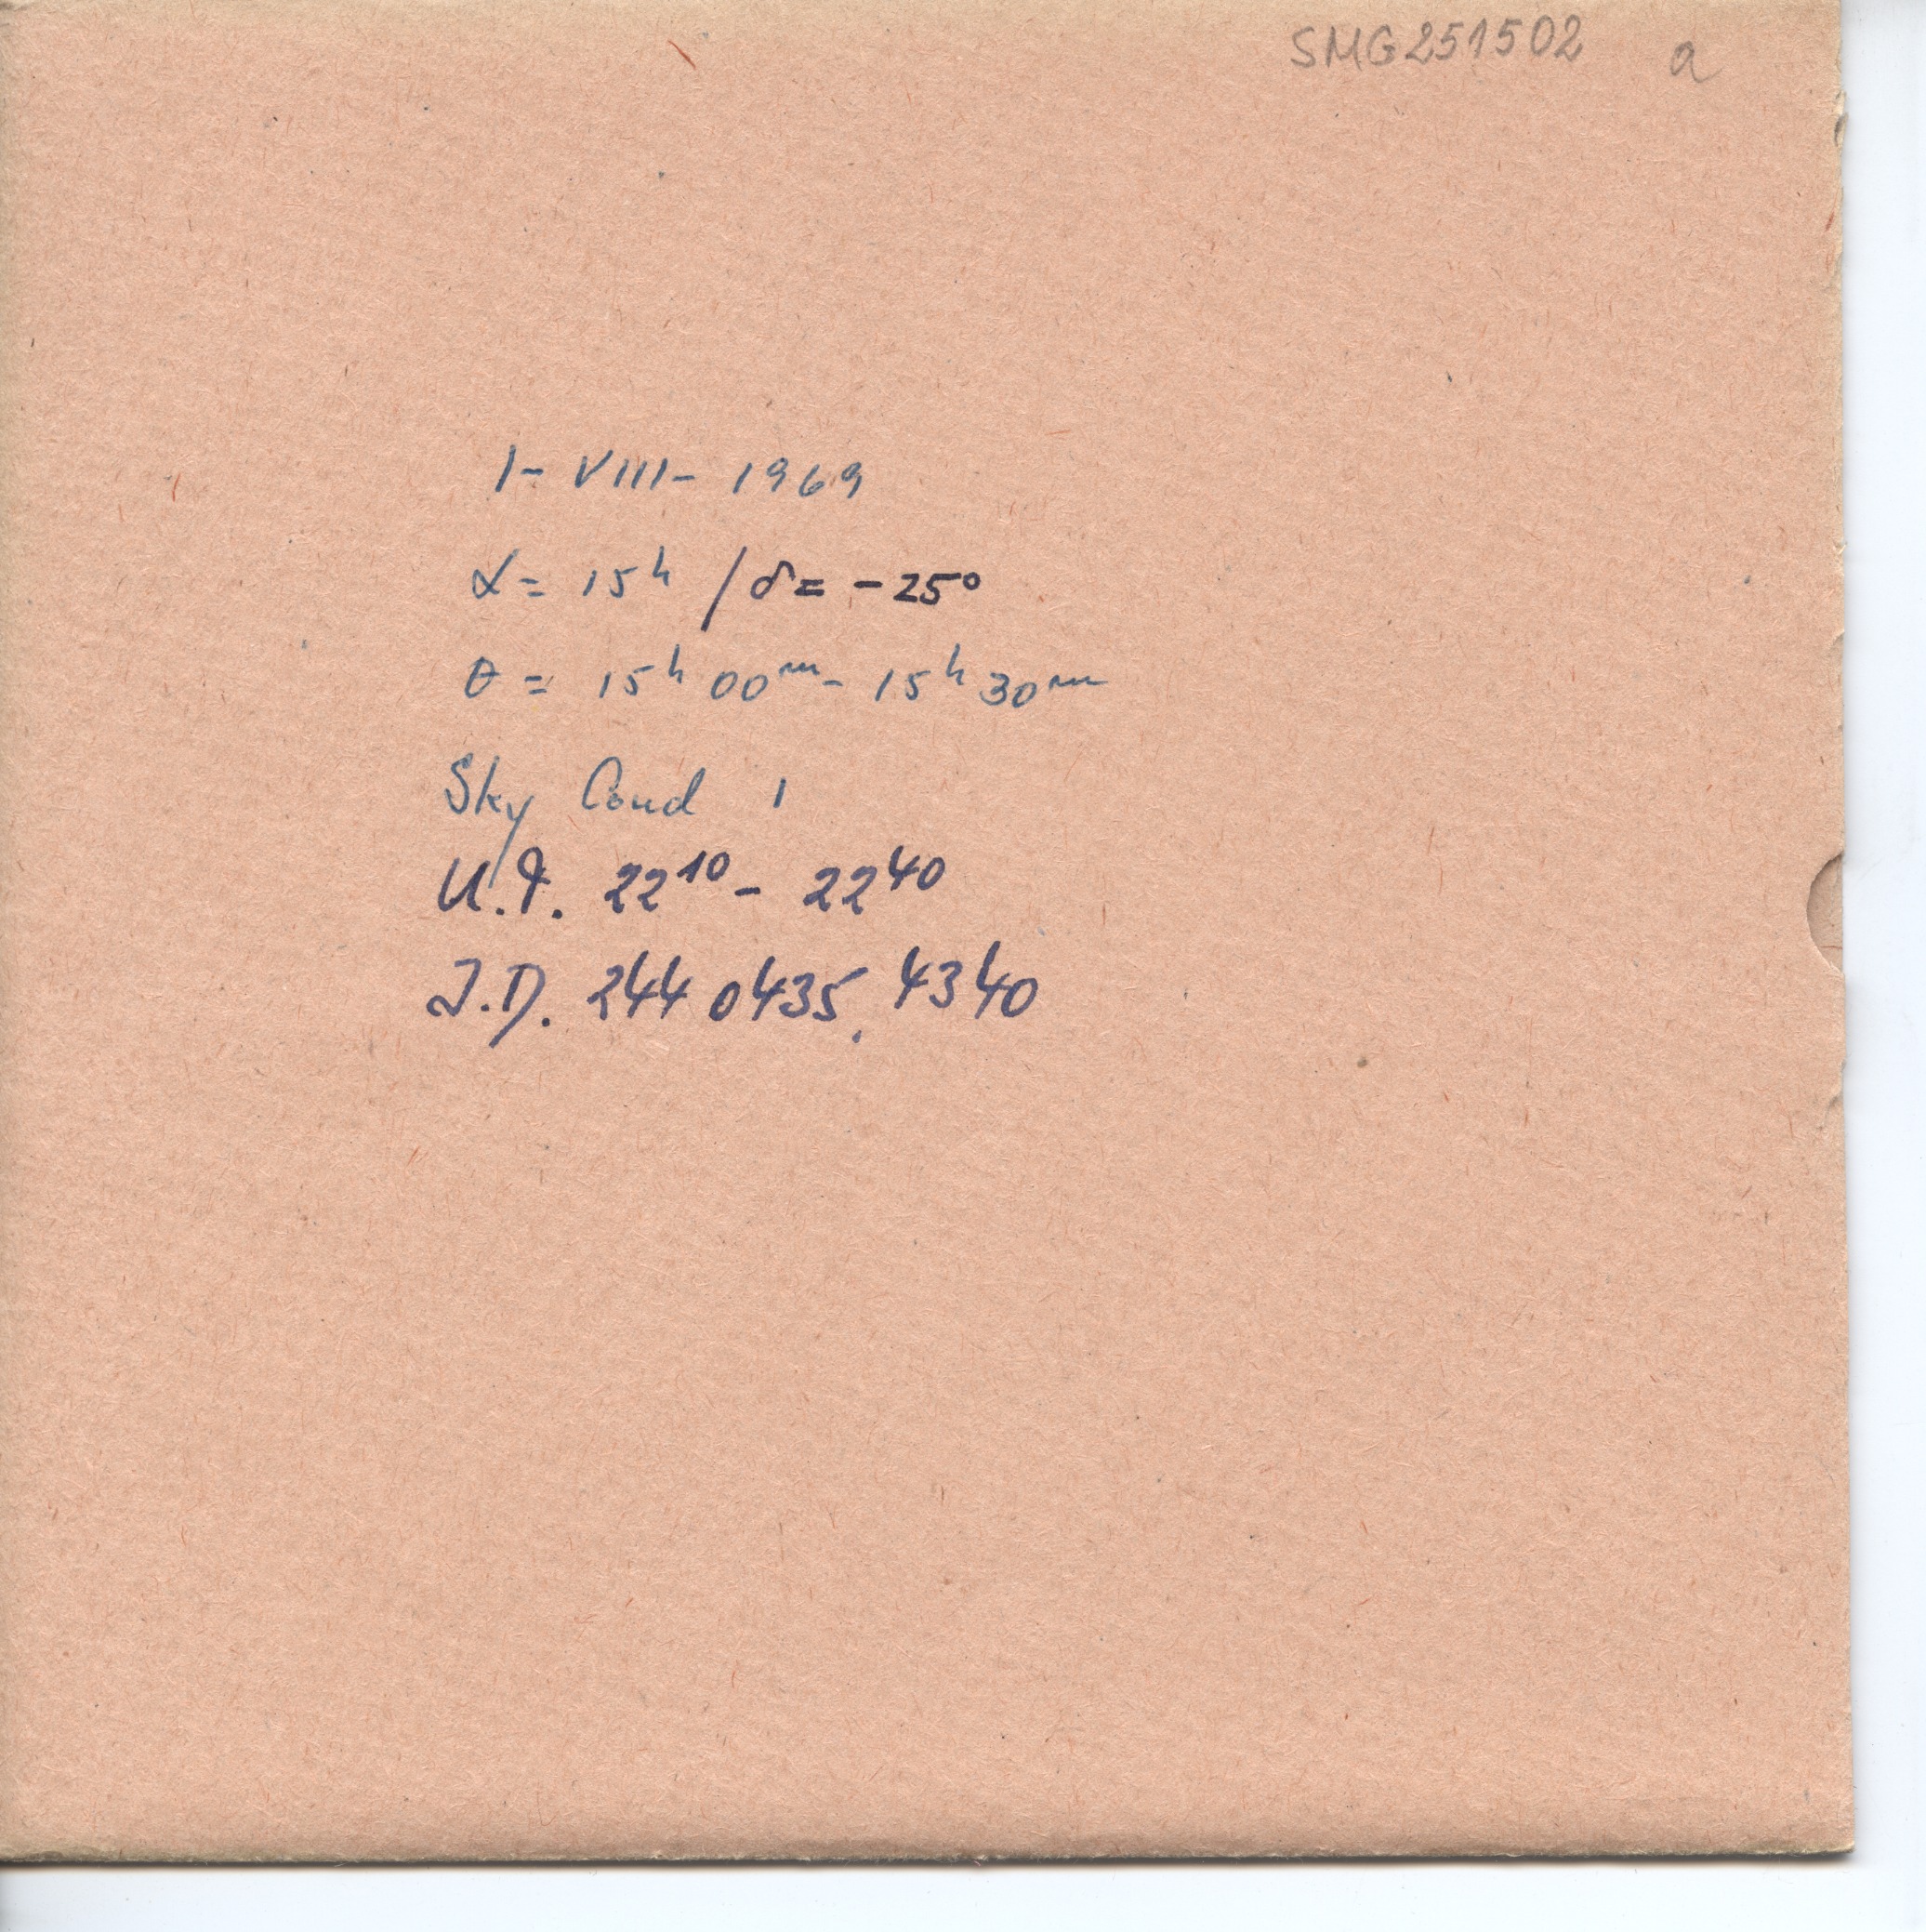 SMG251502 a
1- VIII- 1969
α = 15ʰ / δ = -25°
θ = 15ʰ 00ᵐ - 15ʰ 30ᵐ
Sky Cond 1
U.T. 22¹⁰ - 22⁴⁰
J.D. 244 0435. 4340